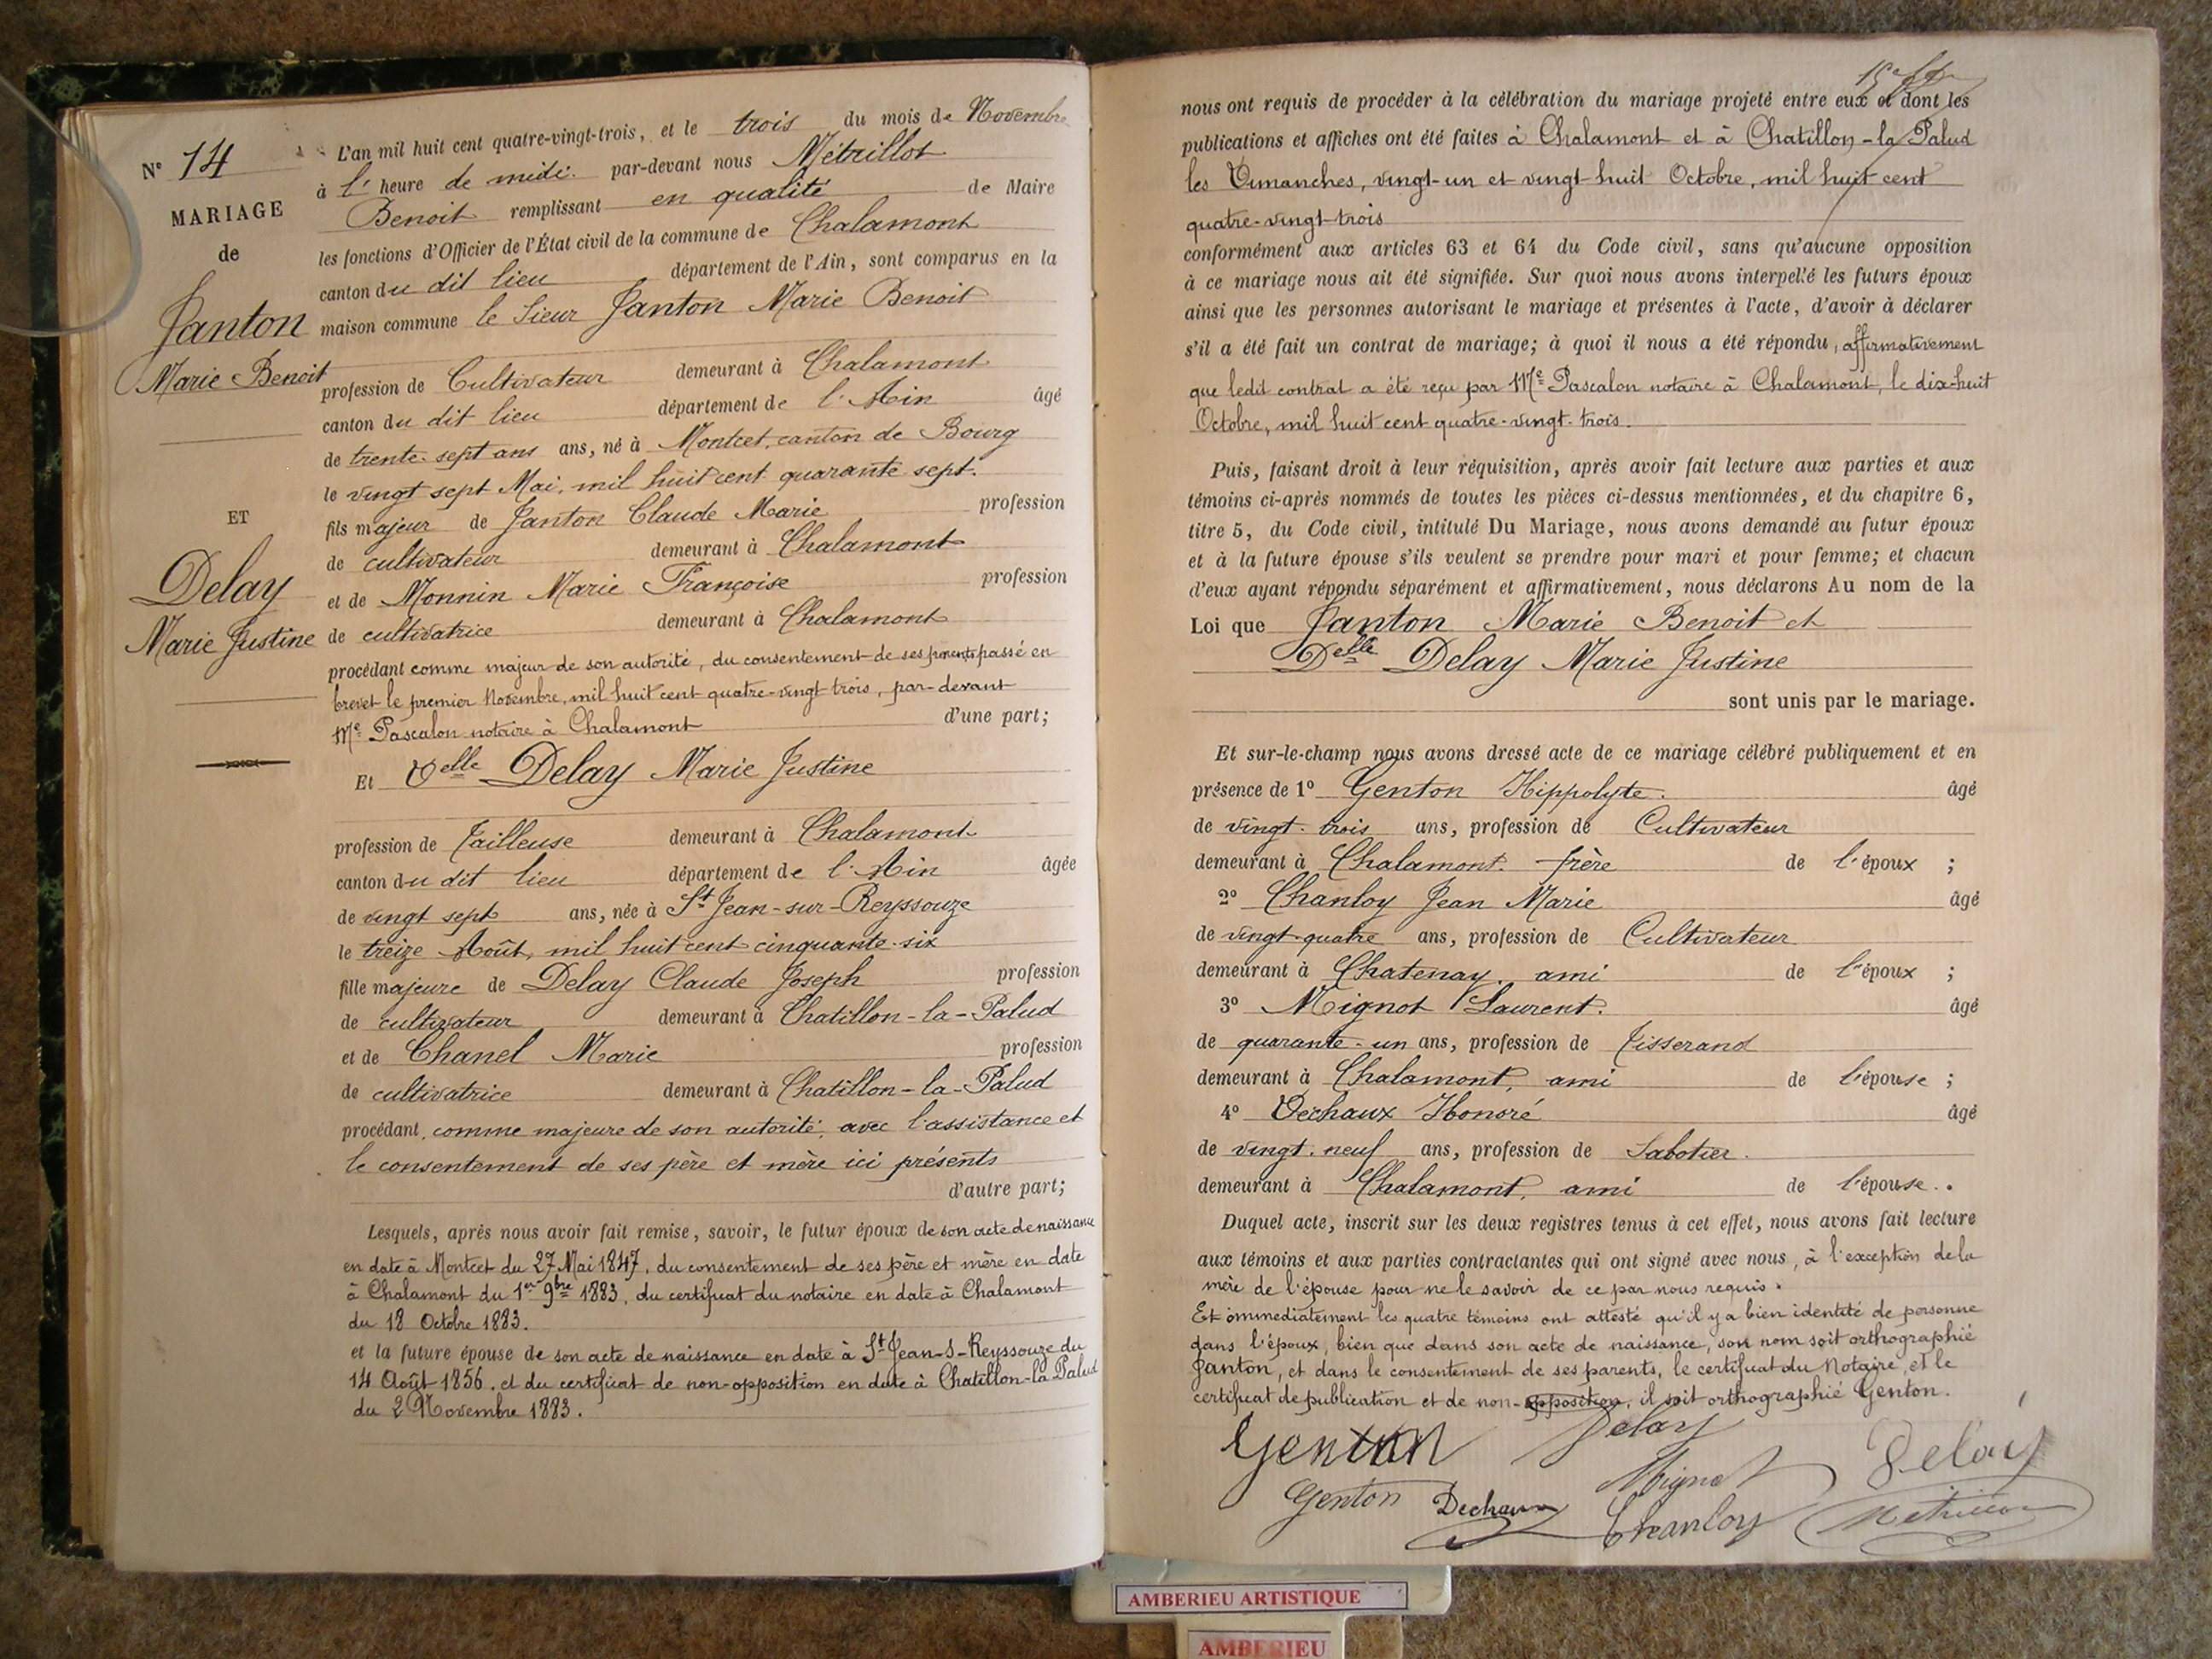 N° 14
MARIAGE
de
Janton
Marie Benoit
ET
Delay
Marie Justine
L'an mil huit cent quatre-vingt-trois, et le trois du mois de Novembre
à l' heure de midi. par-devant nous Métrillot
Benoit remplissant en qualité de Maire
les fonctions d'Officier de l'État civil de la commune de Chalamont
canton du dit lieu département de l'Ain, sont comparus en la
maison commune le Sieur Janton Marie Benoit
profession de Cultivateur demeurant à Chalamont
canton du dit lieu département de l'Ain âgé
de trente-sept ans ans, né à Montcet, canton de Bourg
le vingt sept Mai, mil huit cent quarante sept.
fils majeur de Janton Claude Marie profession
de cultivateur demeurant à Chalamont
et de Monnin Marie Françoise profession
de cultivatrice demeurant à Chalamont
procédant comme majeur de son autorité, du consentement de ses parents passé en
brevet le premier Novembre, mil huit cent quatre-vingt trois, par-devant
Me Pascalon notaire à Chalamont d'une part;
Et Delle Delay Marie Justine
profession de Tailleuse demeurant à Chalamont
canton du dit lieu département de l'Ain âgée
de vingt sept ans, née à St Jean-sur-Reyssouze
le treize Août, mil huit cent cinquante-six
fille majeure de Delay Claude Joseph profession
de cultivateur demeurant à Chatillon-la-Palud
et de Chanel Marie profession
de cultivatrice demeurant à Chatillon-la-Palud
procédant, comme majeure de son autorité, avec l'assistance et
le consentement de ses père et mère ici présents
d'autre part;
Lesquels, après nous avoir fait remise, savoir, le futur époux de son acte de naissance
en date à Montcet du 27 Mai 1847, du consentement de ses père et mère en date
à Chalamont du 1er 9bre 1883, du certificat du notaire en date à Chalamont
du 18 Octobre 1883.
et la future épouse de son acte de naissance en date à St Jean-S-Reyssouze du
14 Août 1856, et du certificat de non-opposition en date à Chatillon-la-Palud
du 2 Novembre 1883.
nous ont requis de procéder à la célébration du mariage projeté entre eux et dont les
publications et affiches ont été faites à Chalamont et à Chatillon-la-Palud
les Dimanches, vingt-un et vingt-huit Octobre, mil huit cent
quatre-vingt-trois
conformément aux articles 63 et 64 du Code civil, sans qu'aucune opposition
à ce mariage nous ait été signifiée. Sur quoi nous avons interpellé les futurs époux
ainsi que les personnes autorisant le mariage et présentes à l'acte, d'avoir à déclarer
s'il a été fait un contrat de mariage; à quoi il nous a été répondu, affirmativement
que ledit contrat a été reçu par Me Pascalon notaire à Chalamont, le dix-huit
Octobre, mil huit cent quatre-vingt-trois.
Puis, faisant droit à leur réquisition, après avoir fait lecture aux parties et aux
témoins ci-après nommés de toutes les pièces ci-dessus mentionnées, et du chapitre 6,
titre 5, du Code civil, intitulé Du Mariage, nous avons demandé au futur époux
et à la future épouse s'ils veulent se prendre pour mari et pour femme; et chacun
d'eux ayant répondu séparément et affirmativement, nous déclarons Au nom de la
Loi que Janton Marie Benoit et
Delle Delay Marie Justine
sont unis par le mariage.
Et sur-le-champ nous avons dressé acte de ce mariage célébré publiquement et en
présence de 1° Genton Hippolyte. âgé
de vingt-trois ans, profession de Cultivateur
demeurant à Chalamont. frère de l'époux ;
2° Chanloy Jean Marie âgé
de vingt-quatre ans, profession de Cultivateur
demeurant à Chatenay, ami de l'époux ;
3° Mignot Laurent. âgé
de quarante-un ans, profession de Tisserand
demeurant à Chalamont, ami de l'épouse ;
4° Dechaux Honoré âgé
de vingt-neuf ans, profession de Sabotier.
demeurant à Chalamont, ami de l'épouse.
Duquel acte, inscrit sur les deux registres tenus à cet effet, nous avons fait lecture
aux témoins et aux parties contractantes qui ont signé avec nous, à l'exception de la
mère de l'épouse pour ne le savoir de ce par nous requis.
Et immediatement les quatre témoins ont attesté qu'il y a bien identité de personne
dans l'époux, bien que dans son acte de naissance, son nom soit orthographié
Janton, et dans le consentement de ses parents, le certificat du Notaire, et le
certificat de publication et de non-opposition, il soit orthographié Genton.
Genton Delay
Mignot Delay
Genton Dechaux Chanloy Métrillot
AMBERIEU ARTISTIQUE
AMBERIEU